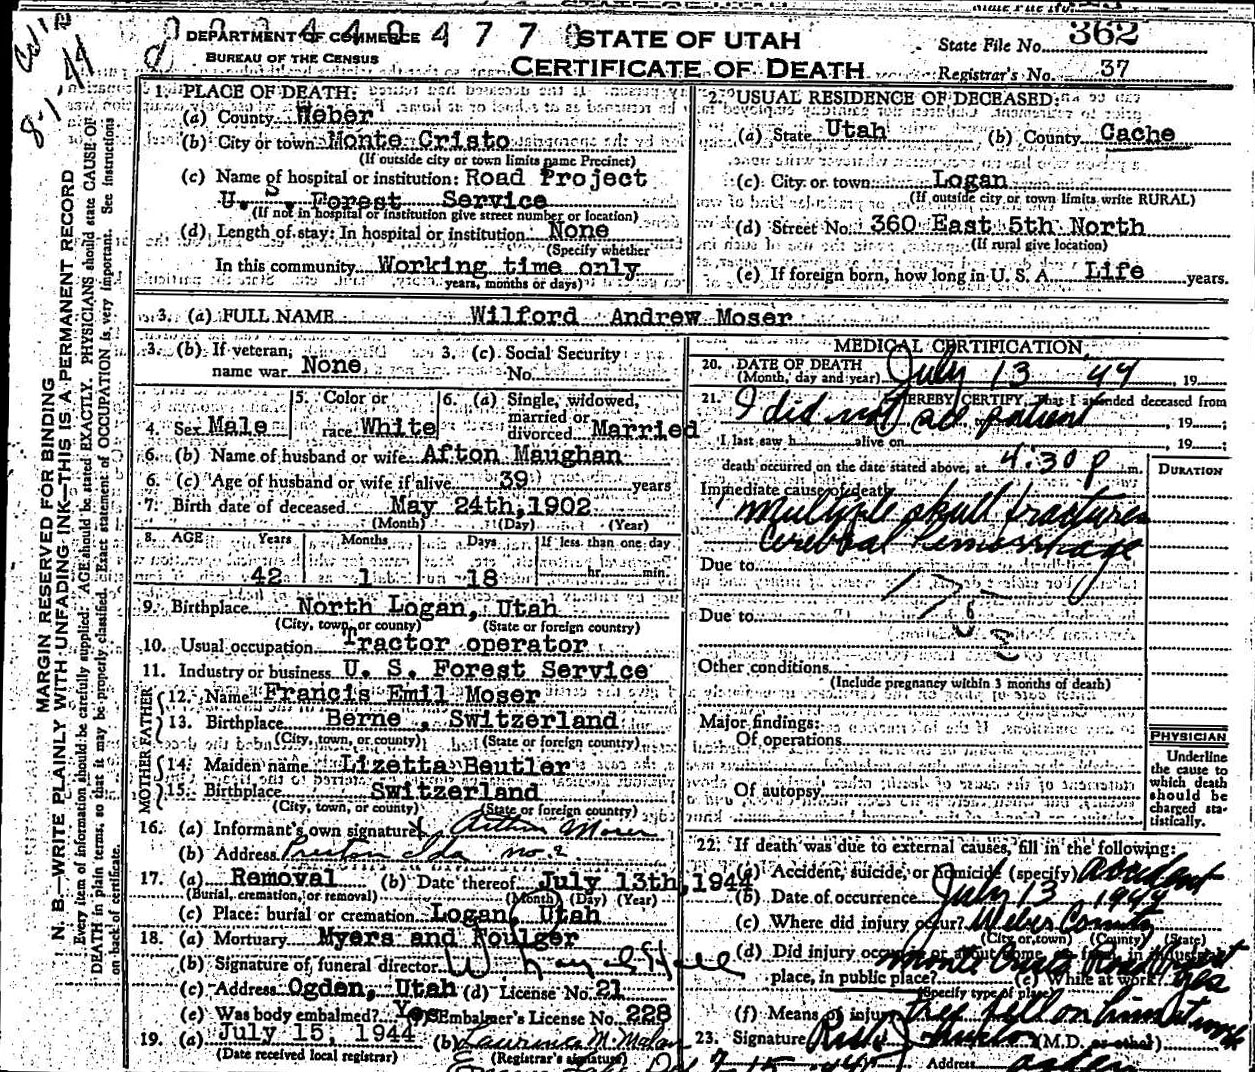 DEPARTMENT OF COMMERCE
BUREAU OF THE CENSUS
STATE OF UTAH
CERTIFICATE OF DEATH
State File No. 362
Registrar's No. 37
8-1-44
MARGIN RESERVED FOR BINDING
N. B.—WRITE PLAINLY WITH UNFADING INK—THIS IS A PERMANENT RECORD
Every item of information should be carefully supplied. AGE should be stated EXACTLY. PHYSICIANS should state CAUSE OF
DEATH in plain terms, so that it may be properly classified. Exact statement of OCCUPATION is very important. See instructions
on back of certificate.
1. PLACE OF DEATH:
(a) County Weber
(b) City or town Monte Cristo
(If outside city or town limits name Precinct)
(c) Name of hospital or institution: Road Project
U. S. Forest Service
(If not in hospital or institution give street number or location)
(d) Length of stay: In hospital or institution None
(Specify whether
In this community Working time only
years, months or days)
2. USUAL RESIDENCE OF DECEASED:
(a) State Utah (b) County Cache
(c) City or town Logan
(If outside city or town limits write RURAL)
(d) Street No. 360 East 5th North
(If rural give location)
(e) If foreign born, how long in U. S. A. Life years.
3. (a) FULL NAME Wilford Andrew Moser
3. (b) If veteran, name war None
3. (c) Social Security No.
4. Sex Male
5. Color or race White
6. (a) Single, widowed, married or divorced Married
6. (b) Name of husband or wife Afton Maughan
6. (c) Age of husband or wife if alive 39 years
7. Birth date of deceased May 24th, 1902
(Month) (Day) (Year)
8. AGE Years Months Days If less than one day
42 1 18 hr. min.
9. Birthplace North Logan, Utah
(City, town, or county) (State or foreign country)
10. Usual occupation Tractor operator
11. Industry or business U. S. Forest Service
FATHER
12. Name Francis Emil Moser
13. Birthplace Berne, Switzerland
(City, town, or county) (State or foreign country)
MOTHER
14. Maiden name Lizetta Beutler
15. Birthplace Switzerland
(City, town, or county) (State or foreign country)
16. (a) Informant's own signature Arthur Moser
(b) Address Preston Ida no. 2
17. (a) Removal (b) Date thereof July 13th, 1944
(Burial, cremation, or removal) (Month) (Day) (Year)
(c) Place: burial or cremation Logan, Utah
18. (a) Mortuary Myers and Foulger
(b) Signature of funeral director
(c) Address Ogden, Utah (d) License No. 21
(e) Was body embalmed? Yes Embalmer's License No. 228
19. (a) July 15, 1944 (b) Laurence M. Malan
(Date received local registrar) (Registrar's signature)
MEDICAL CERTIFICATION
20. DATE OF DEATH July 13 44, 19
(Month, day and year)
21. I HEREBY CERTIFY, That I attended deceased from
I did not see patient, 19 ;
I last saw h alive on , 19 ;
death occurred on the date stated above, at 4:30 P m.
DURATION
Immediate cause of death
Multiple skull fractures
Cerebral hemorrhage
Due to
Due to
Other conditions
(Include pregnancy within 3 months of death)
Major findings:
Of operations
Of autopsy
PHYSICIAN
Underline the cause to which death should be charged statistically.
22. If death was due to external causes, fill in the following:
(a) Accident, suicide, or homicide (specify) Accident
(b) Date of occurrence July 13 1944
(c) Where did injury occur? Weber County
(City or town) (County) (State)
(d) Did injury occur in or about home, on farm, in industrial
place, in public place? Monte Cristo Road Project (e) While at work? Yes
(Specify type of place)
(f) Means of injury tree fell on him at work
23. Signature (M.D. or other)
Address